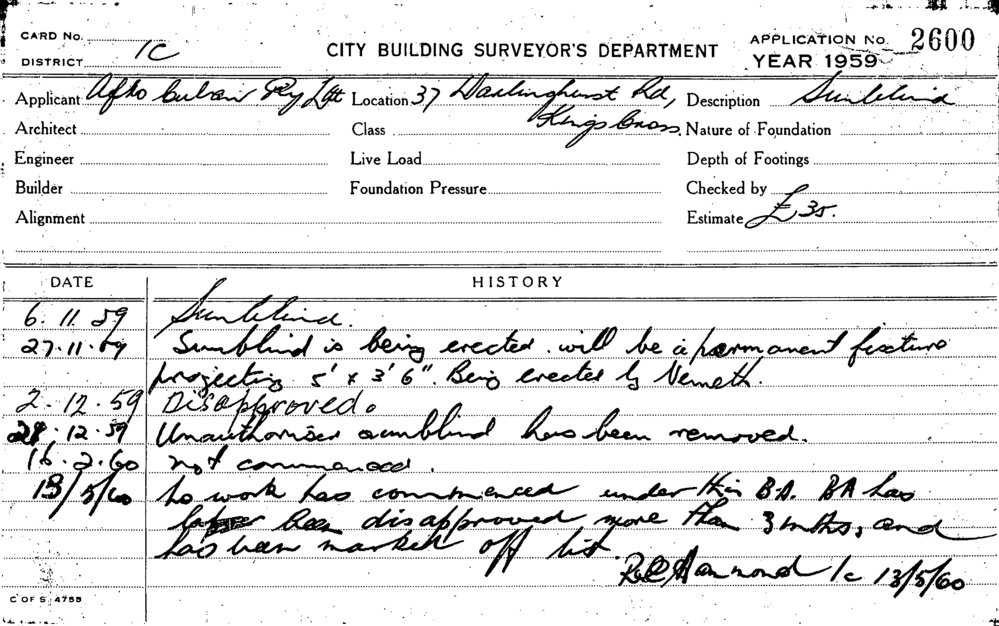 CARD No.
DISTRICT 1C
CITY BUILDING SURVEYOR'S DEPARTMENT
APPLICATION No. 2600
YEAR 1959
Applicant Pty Ltd Location 37 Darlinghurst Rd, Description Sunblind
Kings Cross
Architect Class Nature of Foundation
Engineer Live Load Depth of Footings
Builder Foundation Pressure Checked by
Alignment Estimate £35.
DATE HISTORY
6.11.59 Sunblind.
27.11.59 Sunblind is being erected. will be a permanent fixture
projecting 5' x 3'6". Being erected by Nemeth.
2.12.59 Disapproved.
28.12.59 Unauthorised sunblind has been removed.
16.2.60 not commenced.
13/5/60 No work has commenced under this BA. BA has
been disapproved more than 3 mths, and
has been marked off list.
Hammond 1c 13/5/60
C OF S 4758